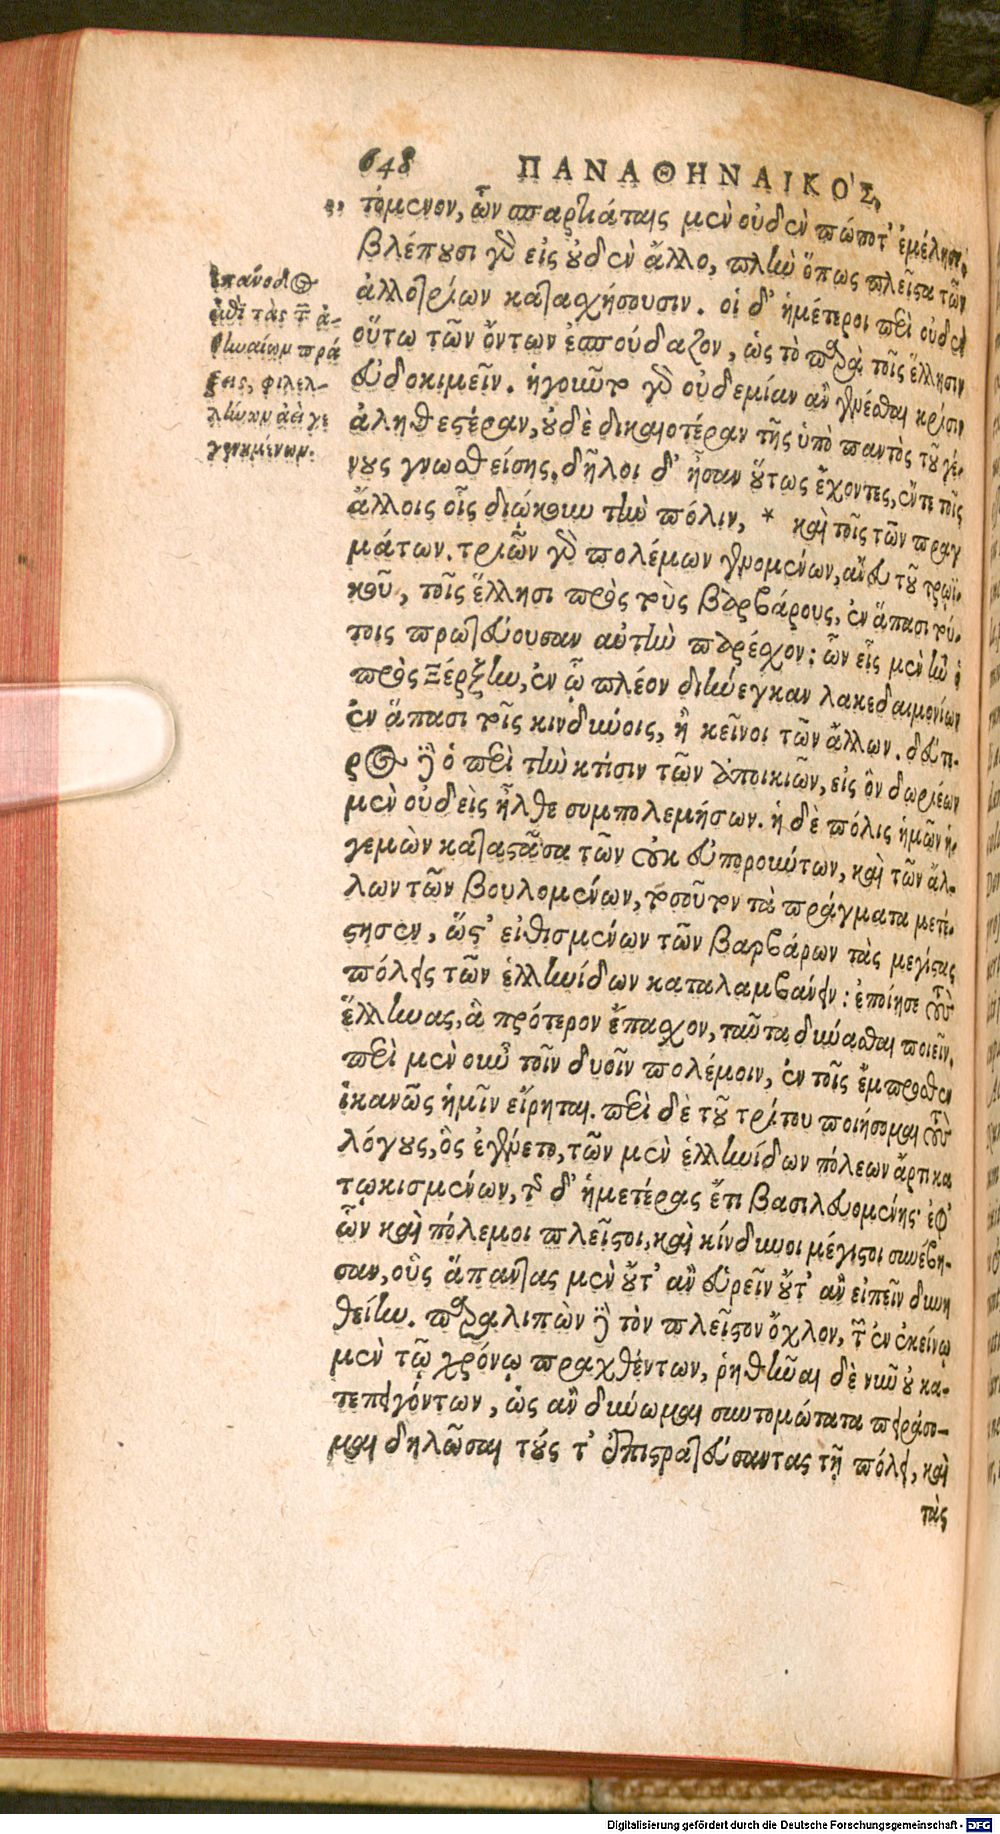 648 ΠΑΝΑΘΗΝΑΙΚΟ'Σ.
τόμενον, ὧν σπαρτιάταις μὲν οὐδὲν πώποτ' ἐμέλησε.
βλέπουσι γὰρ εἰς οὐδὲν ἄλλο, πλὴν ὅπως πλεῖστα τῶν
ἀλλοτρίων κατασχήσουσιν. οἱ δ' ἡμέτεροι περὶ οὐδὲν
οὕτω τῶν ὄντων ἐσπούδαζον, ὡς τὸ παρὰ τοῖς ἕλλησιν
εὐδοκιμεῖν. ἡγοῦντο γὰρ οὐδεμίαν ἂν γενέσθαι κρίσιν
ἀληθεστέραν, οὐδὲ δικαιοτέραν τῆς ὑπὸ παντὸς τοῦ γέ-
νους γνωσθείσης. δῆλοι δ' ἦσαν οὕτως ἔχοντες, ἔν τε τοῖς
ἄλλοις οἷς διῴκουν τὴν πόλιν, * καὶ τοῖς τῶν πραγ
μάτων. τριῶν γὰρ πολέμων γενομένων, ἄνευ τοῦ τρωϊ-
κοῦ, τοῖς ἕλλησι πρὸς τοὺς βαρβάρους, ἐν ἅπασι τού-
τοις πρωτεύουσαν αὐτὴν παρέσχον: ὧν εἷς μὲν ἦν ὁ
πρὸς Ξέρξην, ἐν ᾧ πλέον διήνεγκαν λακεδαιμονίων
ἐν ἅπασι τοῖς κινδύνοις, ἢ κεῖνοι τῶν ἄλλων. δεύτε-
ρος δὲ ὁ περὶ τὴν κτίσιν τῶν ἀποικιῶν, εἰς ὃν δωριέων
μὲν οὐδεὶς ἦλθε συμπολεμήσων. ἡ δὲ πόλις ἡμῶν ἡ-
γεμὼν καταστᾶσα τῶν οὐκ εὐπορούντων, καὶ τῶν ἄλ-
λων τῶν βουλομένων, τοσοῦτον τὰ πράγματα μετέ-
στησεν, ὥστ' εἰθισμένων τῶν βαρβάρων τὰς μεγίστας
πόλεις τῶν ἑλληνίδων καταλαμβάνειν: ἐποίησε τοὺς
ἕλληνας, ἃ πρότερον ἔπασχον, ταῦτα δύνασθαι ποιεῖν.
περὶ μὲν οὖν τοῖν δυοῖν πολέμοιν, ἐν τοῖς ἔμπροσθεν
ἱκανῶς ἡμῖν εἴρηται. περὶ δὲ τοῦ τρίτου ποιήσομαι τοὺς
λόγους, ὃς ἐγένετο, τῶν μὲν ἑλληνίδων πόλεων ἄρτι κα
τῳκισμένων, τῆς δ' ἡμετέρας ἔτι βασιλευομένης· ἐφ'
ὧν καὶ πόλεμοι πλεῖστοι, καὶ κίνδυνοι μέγιστοι συνέβη-
σαν, οὓς ἅπαντας μὲν οὔτ' ἂν εὑρεῖν οὔτ' ἂν εἰπεῖν δυνη
θείην. παραλιπὼν δὲ τὸν πλεῖστον ὄχλον, τῶν ἐν ἐκείνῳ
μὲν τῷ χρόνῳ πραχθέντων, ῥηθῆναι δὲ νῦν οὐ κα-
τεπειγόντων, ὡς ἂν δύνωμαι συντομώτατα πειράσο-
μαι δηλῶσαι τούς τ' ἐπιστρατεύσαντας τῇ πόλει, καὶ
τὰς
ἐπάνοδος
ἐπὶ τὰς τῶν ἀ-
θηναίων πρά
ξεις, φιλελ-
λήνων ἀεὶ γε
γενημένων.